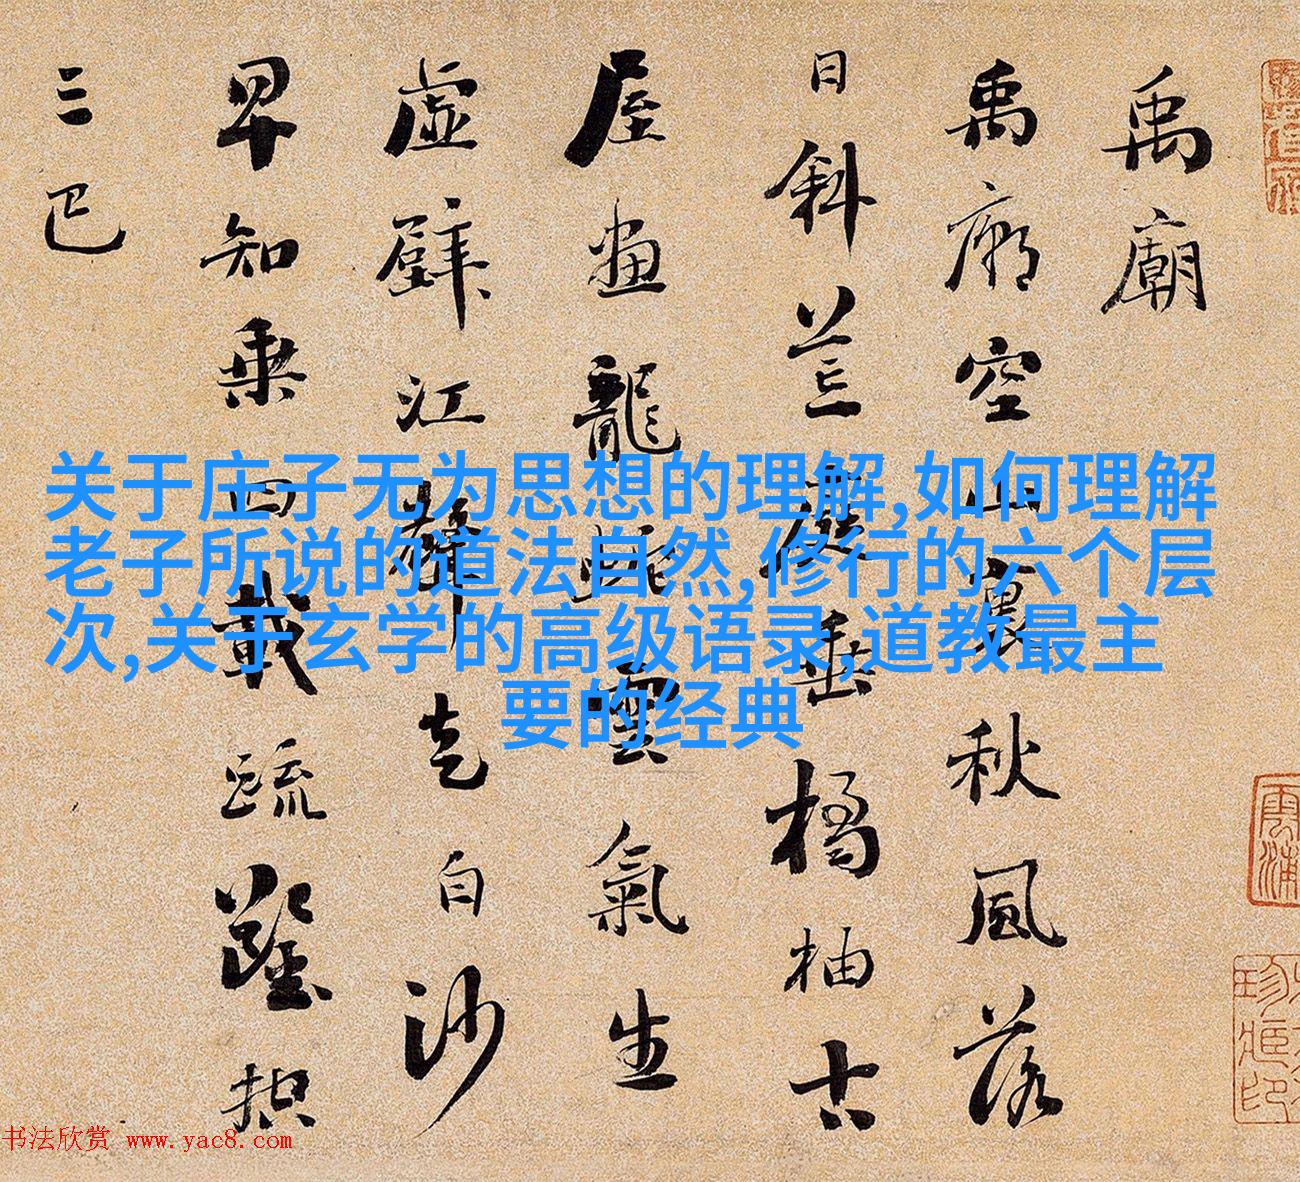 禹廟
禹廟空山裏秋風落
日斜荒庭垂橘柚古
屋畫龍蛇雲氣生
虛壁江聲走白沙
早知乘四載疏鑿控
三巴
关于庄子无为思想的理解,如何理解
老子所说的道法自然,修行的六个层
次,关于玄学的高级语录,道教最主
要的经典
书法欣赏 www.yac8.com